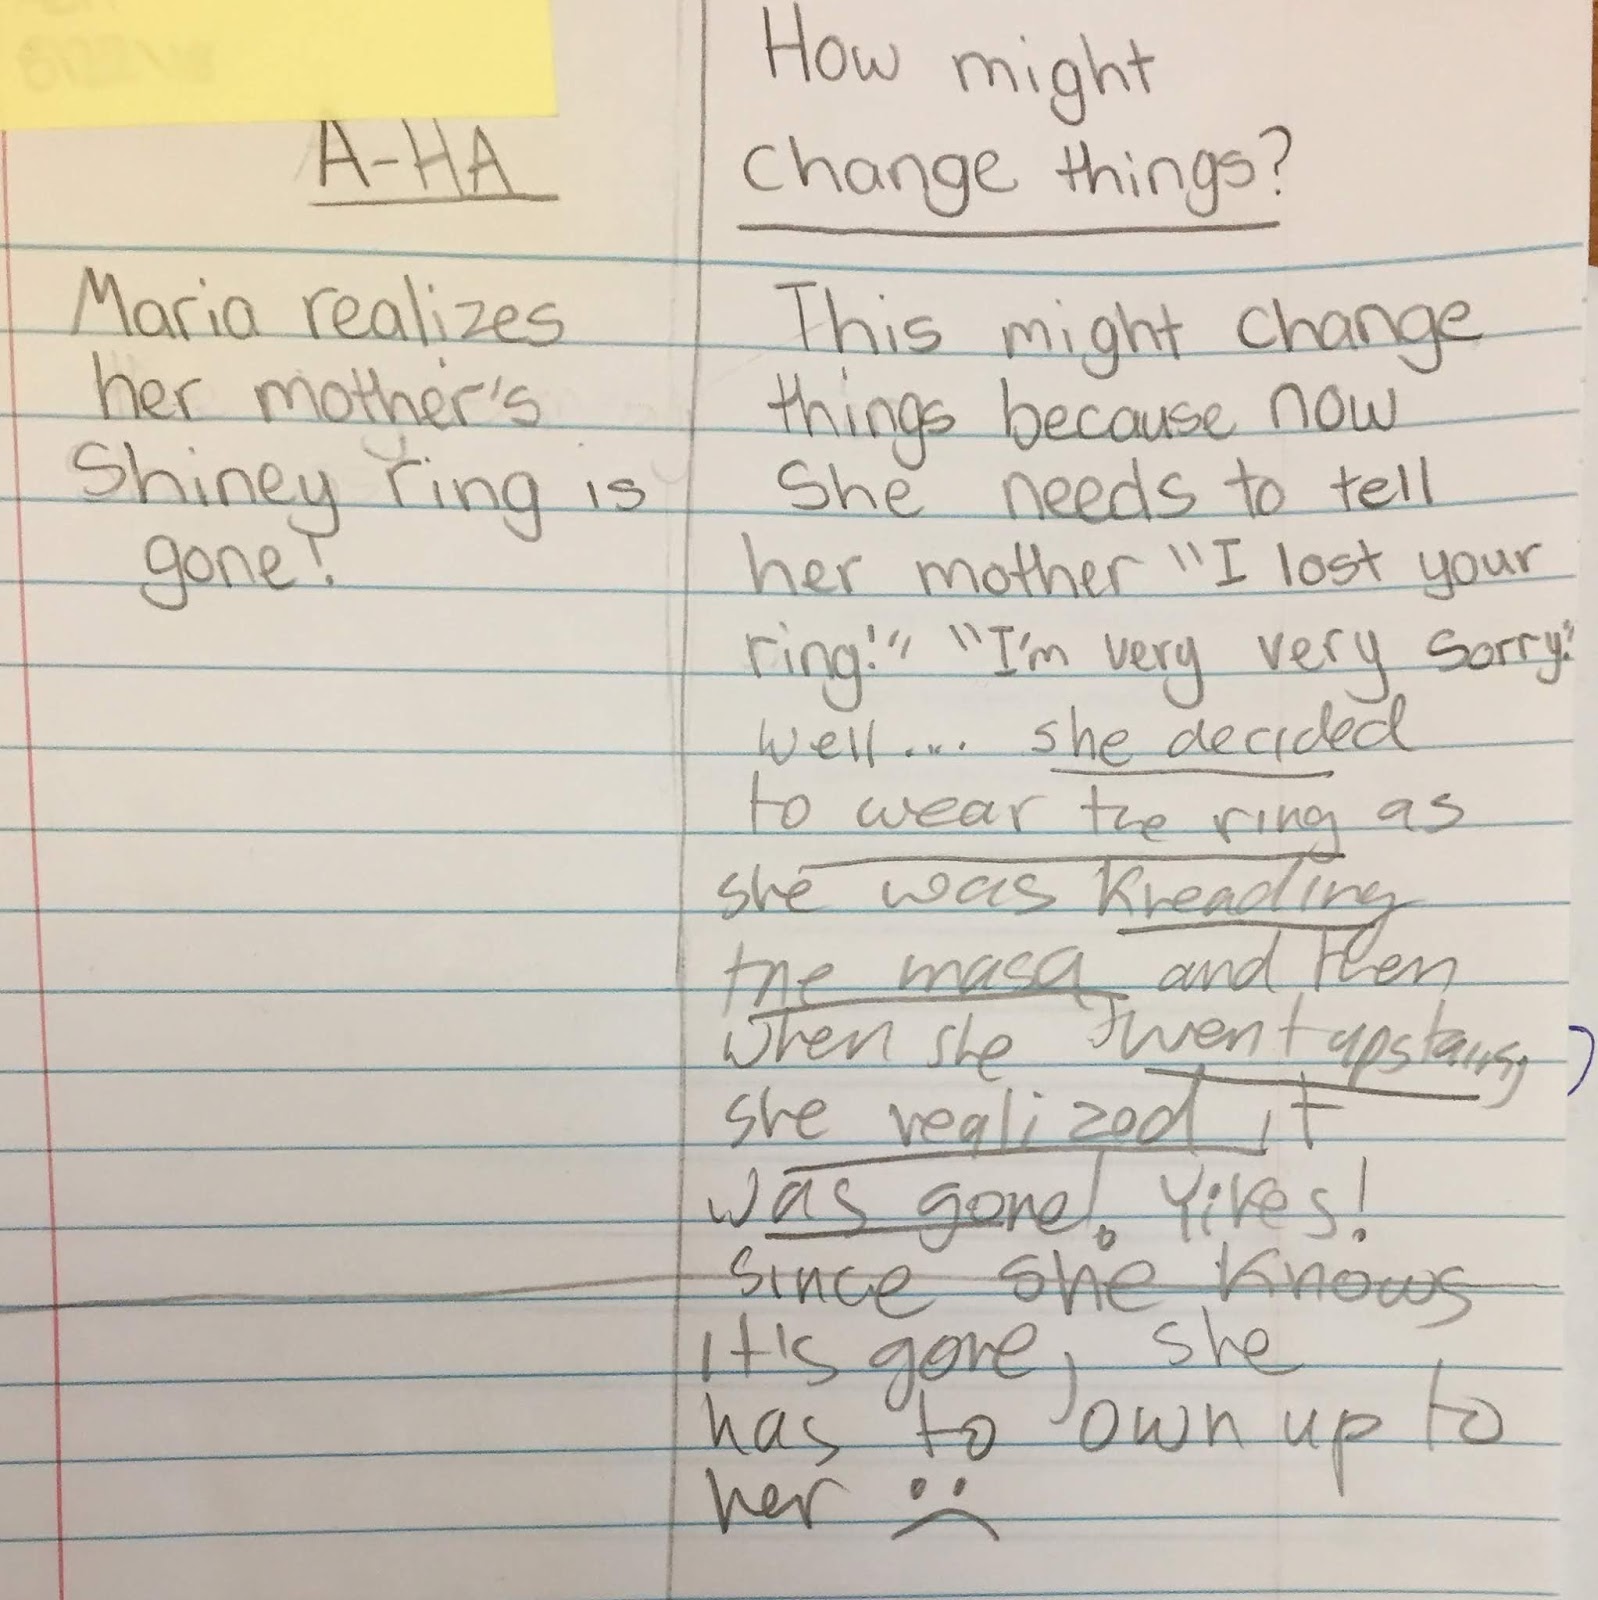 A-HA
Maria realizes
her mother's
Shiney ring is
gone!
How might
change things?
This might change
things because now
She needs to tell
her mother "I lost your
ring!" "I'm very very sorry!"
well.... she decided
to wear the ring as
she was Kneading
the masa and then
when she went upstairs,
she realized it
was gone! Yikes!
since she knows
it's gone, she
has to own up to
her